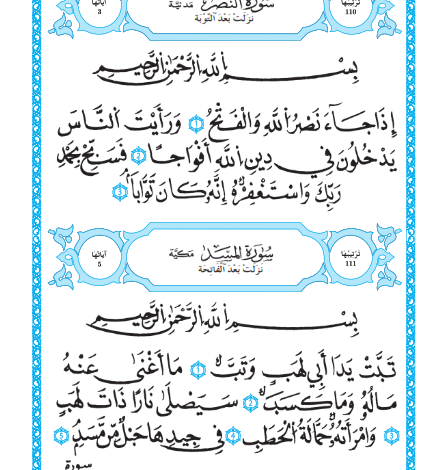 تَرتيبُها سُورَةُ النَّصْرِ مَدَنيَّة آيَاتُها
110 نَزَلَتْ بَعْدَ التَّوْبَة 3
بِسْمِ اللَّهِ الرَّحْمَٰنِ الرَّحِيمِ
إِذَا جَاءَ نَصْرُ اللَّهِ وَالْفَتْحُ 1 وَرَأَيْتَ النَّاسَ
يَدْخُلُونَ فِي دِينِ اللَّهِ أَفْوَاجًا 2 فَسَبِّحْ بِحَمْدِ
رَبِّكَ وَاسْتَغْفِرْهُ إِنَّهُ كَانَ تَوَّابًا 3
تَرتيبُها سُورَةُ المَسَدِ مَكيَّة آيَاتُها
111 نَزَلَتْ بَعْدَ الفَاتِحَة 5
بِسْمِ اللَّهِ الرَّحْمَٰنِ الرَّحِيمِ
تَبَّتْ يَدَا أَبِي لَهَبٍ وَتَبَّ 1 مَا أَغْنَىٰ عَنْهُ
مَالُهُ وَمَا كَسَبَ 2 سَيَصْلَىٰ نَارًا ذَاتَ لَهَبٍ
3 وَامْرَأَتُهُ حَمَّالَةُ الْحَطَبِ 4 فِي جِيدِهَا حَبْلٌ مِّن مَّسَدٍ 5
سورة